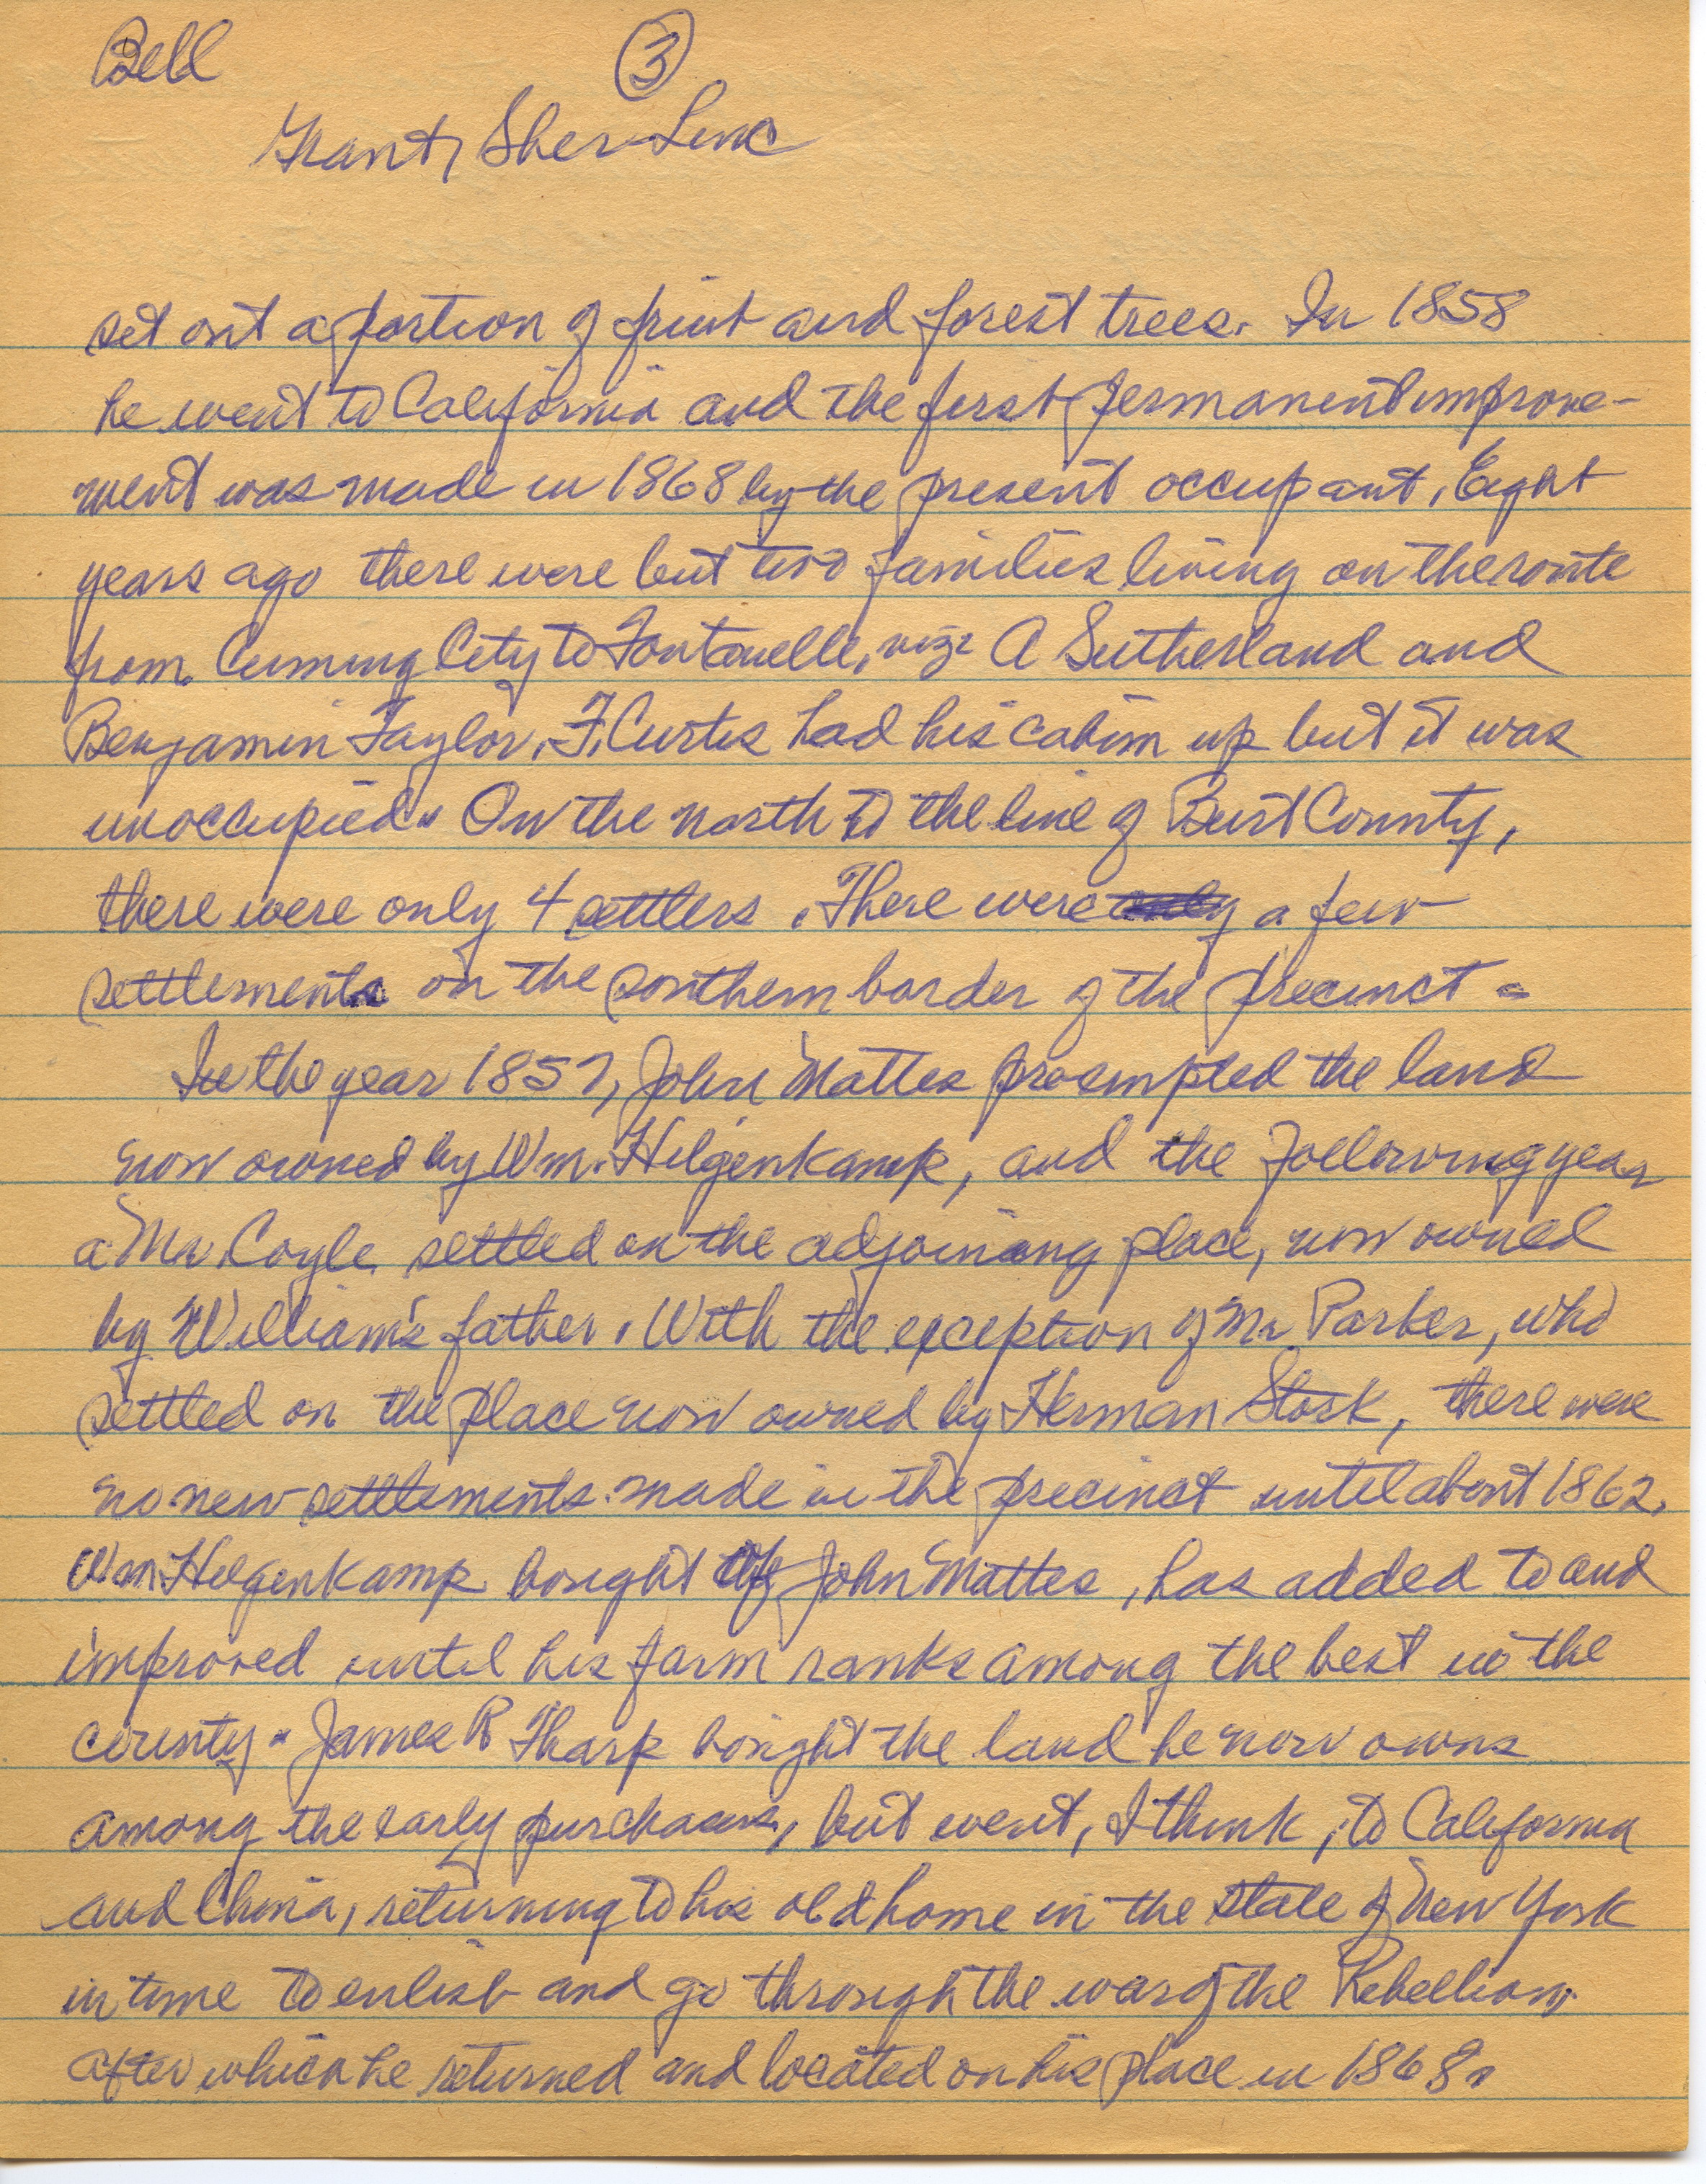 Bell
3
Grant, Sher-Linc
set out a portion of fruit and forest trees. In 1858
he went to California and the first permanent improve-
ment was made in 1868 by the present occupant. Eight
years ago there were but two families living on the route
from Cuming City to Fontanelle, viz: A Sutherland and
Benjamin Taylor. F. Curtis had his cabin up but it was
unoccupied. On the north to the line of Burt County,
there were only 4 settlers. There were only a few
settlements on the southern border of the precinct -
In the year 1857, John Mattes preempted the land
now owned by Wm. Hilgenkamp, and the following year
a Mr. Coyle settled on the adjoining place, now owned
by William's father. With the exception of Mr Parker, who
settled on the place now owned by Herman Stork, there were
no new settlements made in the precinct until about 1862.
Wm. Hilgenkamp bought of John Mattes, has added to and
improved until his farm ranks among the best in the
county. James R Tharp bought the land he now owns
among the early purchasers, but went, I think, to California
and China, returning to his old home in the state of New York
in time to enlist and go through the war of the Rebellion.
After which he returned and located on his place in 1868.